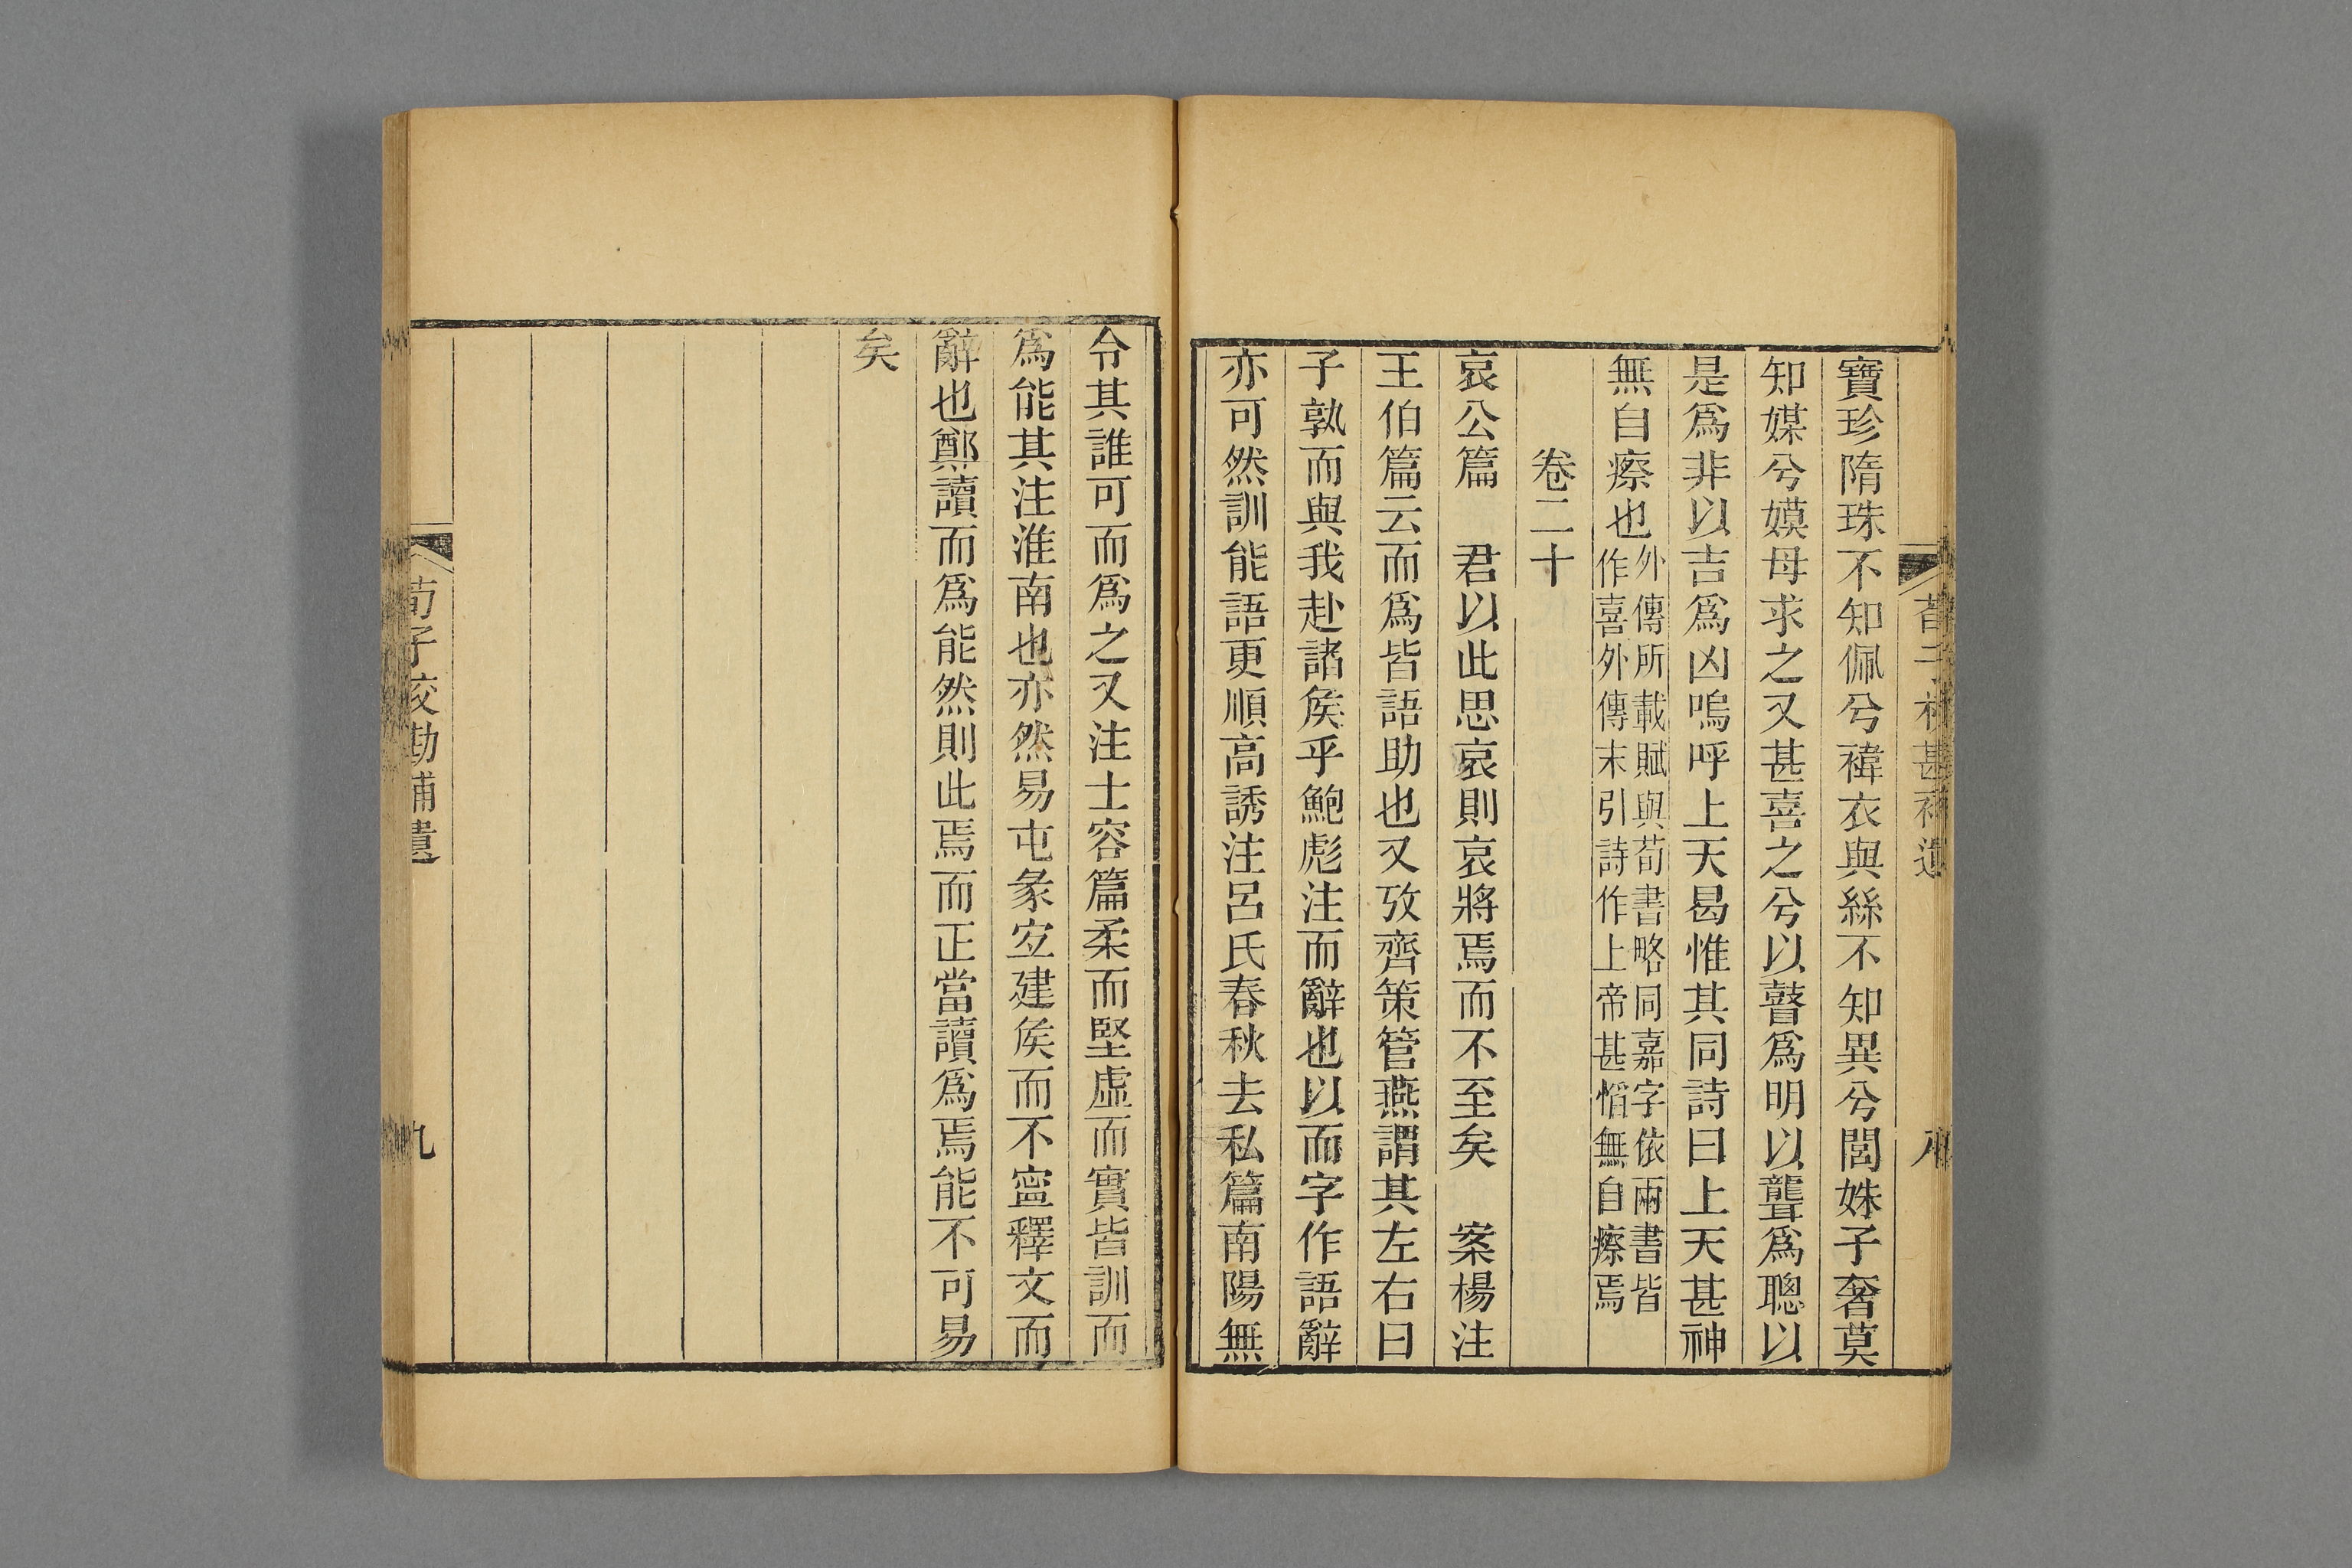 寶珍隋珠不知佩兮褘衣與絲不知異兮閭姝子奢莫
知媒兮嫫母求之又甚喜之兮以瞽爲明以聾爲聰以
是爲非以吉爲凶嗚呼上天曷惟其同詩曰上天甚神
無自瘵也外傳所載賦與荀書略同嘉字依兩書皆
作喜外傳末引詩作上帝甚慆無自瘵焉
卷二十
哀公篇　君以此思哀則哀將焉而不至矣　案楊注
王伯篇云而爲皆語助也又攷齊策管燕謂其左右曰
子孰而與我赴諸矦乎鮑彪注而辭也以而字作語辭
亦可然訓能語更順高誘注呂氏春秋去私篇南陽無
令其誰可而爲之又注士容篇柔而堅虛而實皆訓而
爲能其注淮南也亦然易屯彖宐建矦而不寍釋文而
辭也鄭讀而爲能然則此焉而正當讀爲焉能不可易
矣
荀子校勘補遺
九